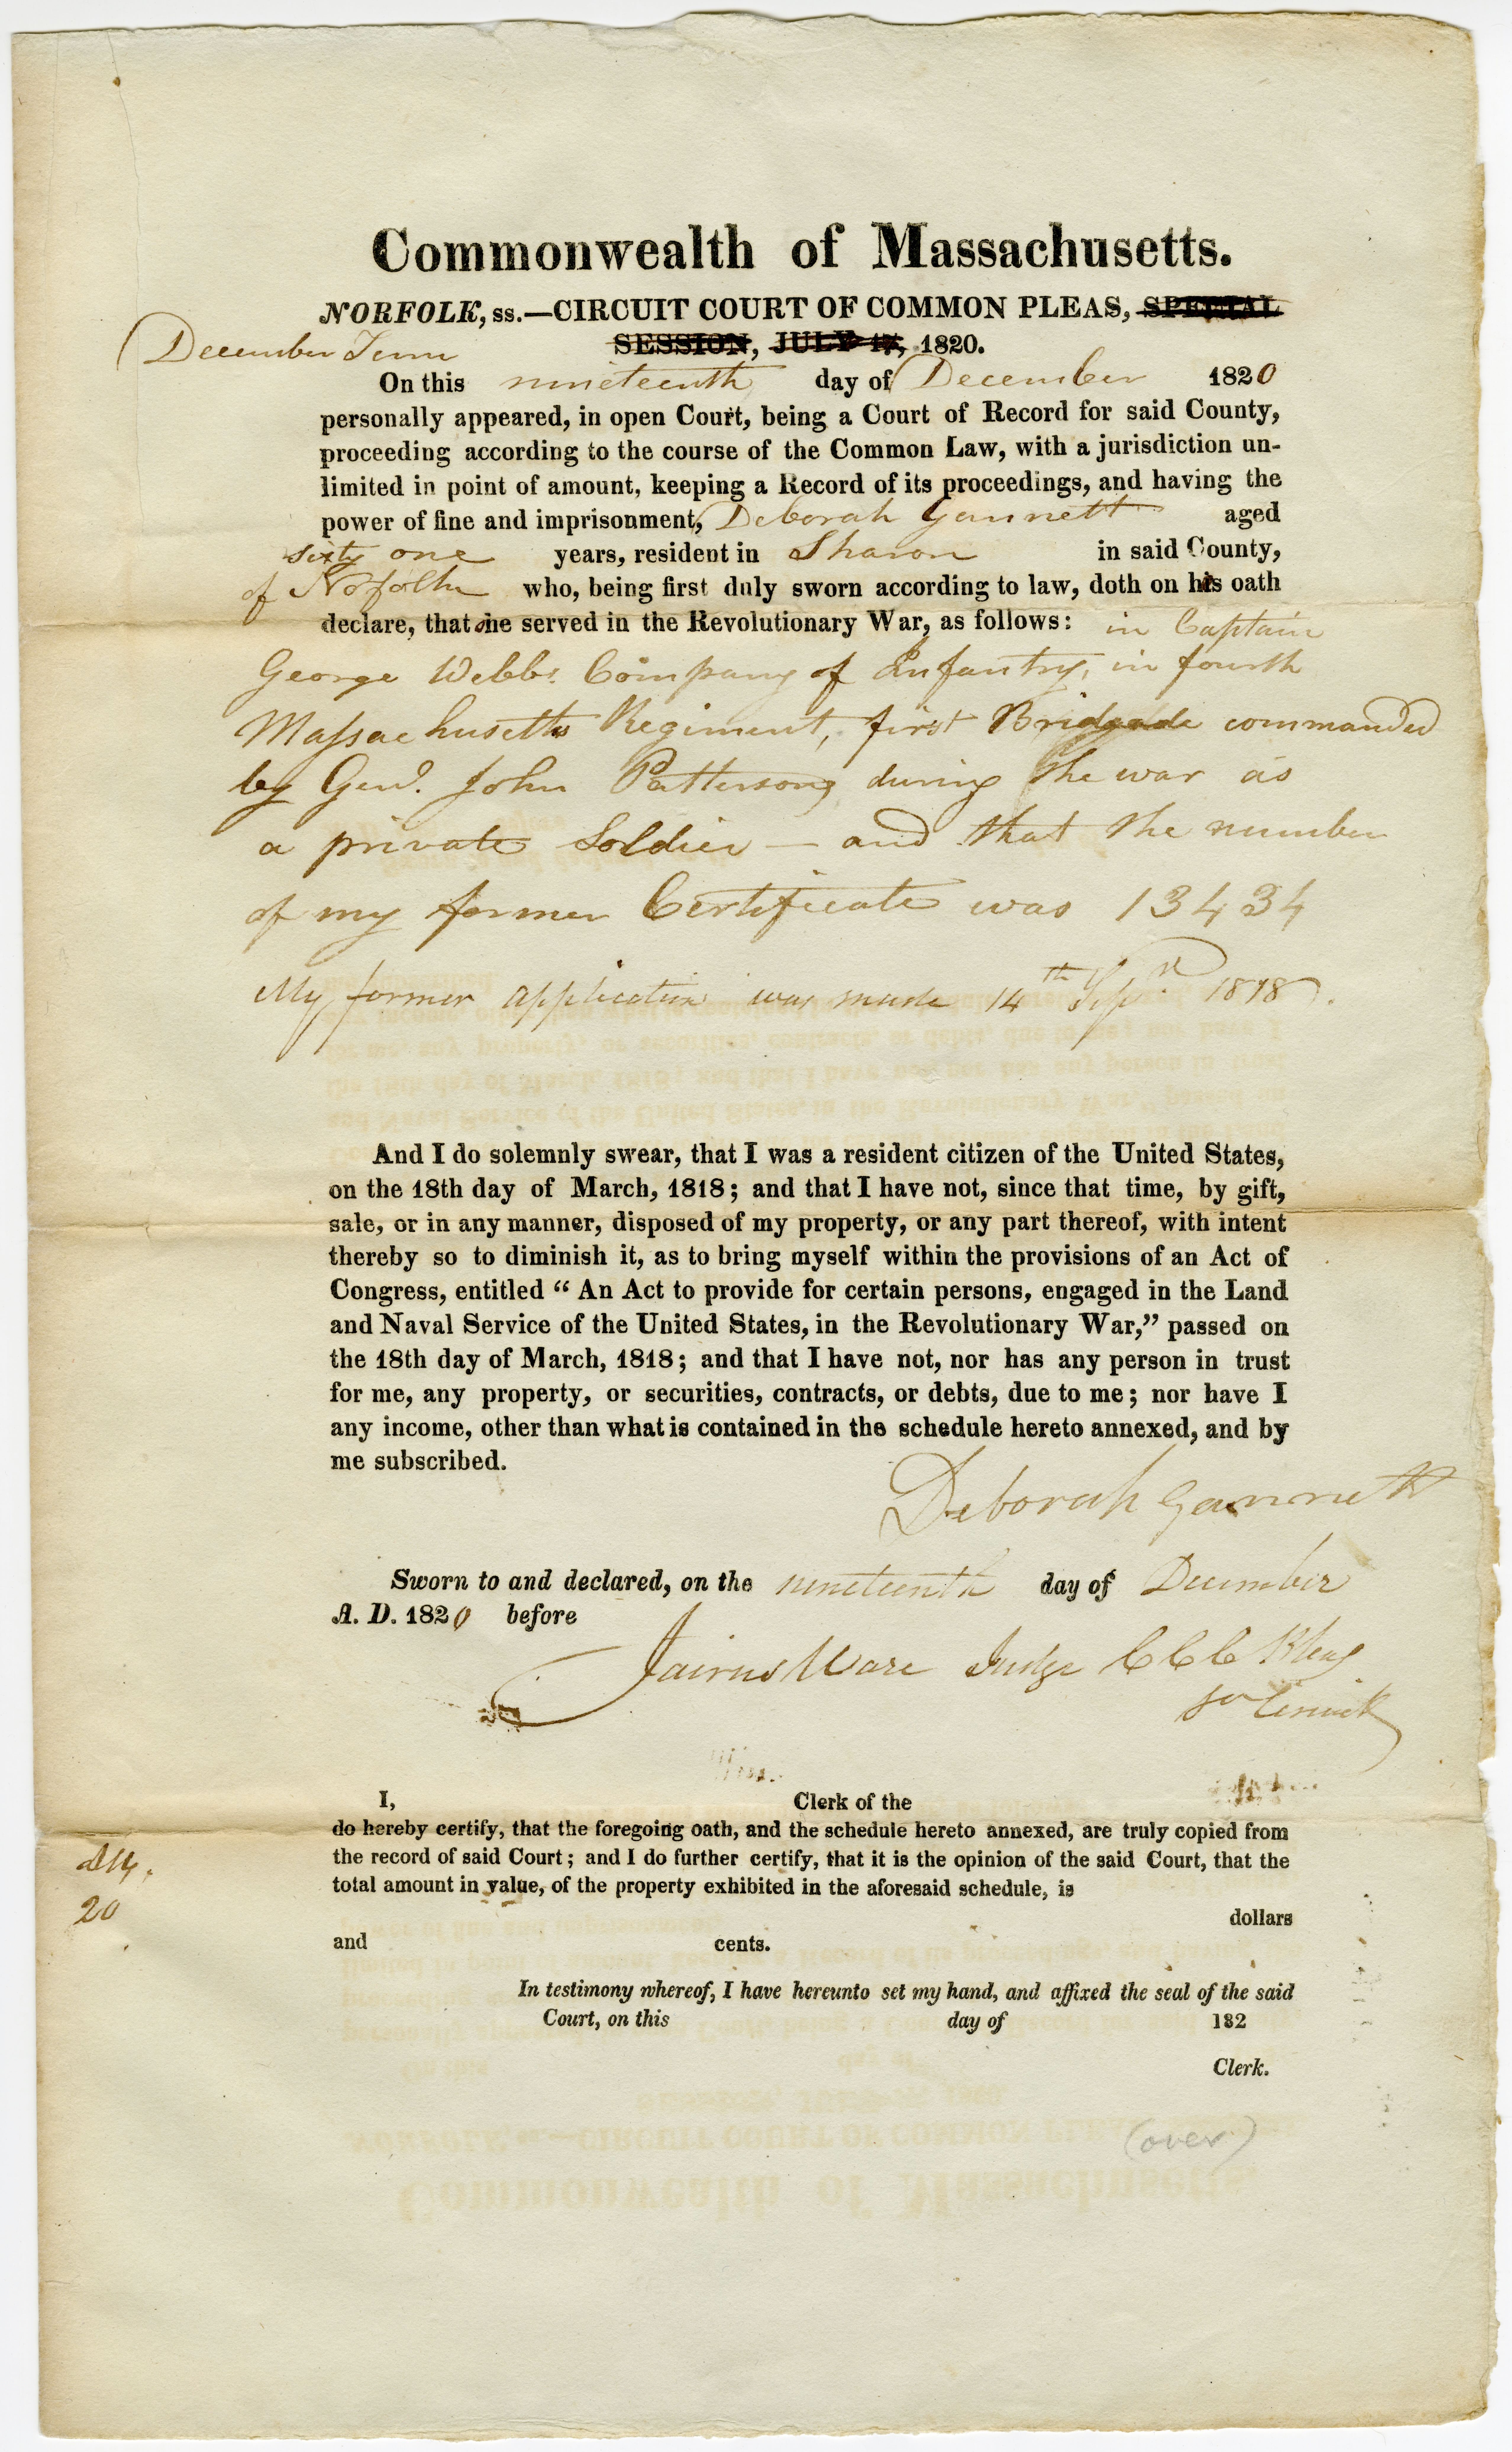 Commonwealth of Massachusetts.
NORFOLK, ss.—CIRCUIT COURT OF COMMON PLEAS, SPECIAL
December Term SESSION, JULY 17, 1820.
On this nineteenth day of December 1820
personally appeared, in open Court, being a Court of Record for said County,
proceeding according to the course of the Common Law, with a jurisdiction un-
limited in point of amount, keeping a Record of its proceedings, and having the
power of fine and imprisonment, Deborah Gannett aged
sixty one years, resident in Sharon in said County,
of Norfolk who, being first duly sworn according to law, doth on his oath
declare, that she served in the Revolutionary War, as follows: in Captain
George Webbs Company of Infantry, in fourth
Massachusetts Regiment, first Bridgade commanded
by Genl. John Patterson, during the war as
a private Soldier — and that the number
of my former Certificate was 13434
My former application was made 14th Sepr. 1818.
And I do solemnly swear, that I was a resident citizen of the United States,
on the 18th day of March, 1818; and that I have not, since that time, by gift,
sale, or in any manner, disposed of my property, or any part thereof, with intent
thereby so to diminish it, as to bring myself within the provisions of an Act of
Congress, entitled “ An Act to provide for certain persons, engaged in the Land
and Naval Service of the United States, in the Revolutionary War,” passed on
the 18th day of March, 1818; and that I have not, nor has any person in trust
for me, any property, or securities, contracts, or debts, due to me; nor have I
any income, other than what is contained in the schedule hereto annexed, and by
me subscribed.
Deborah Gannett
Sworn to and declared, on the nineteenth day of December
A. D. 1820 before
Jairus Ware Judge C C C Pleas
So Circuit
I, Clerk of the
do hereby certify, that the foregoing oath, and the schedule hereto annexed, are truly copied from
the record of said Court; and I do further certify, that it is the opinion of the said Court, that the
total amount in value, of the property exhibited in the aforesaid schedule, is
dollars
and cents.
20
In testimony whereof, I have hereunto set my hand, and affixed the seal of the said
Court, on this day of 182
Clerk.
(over)